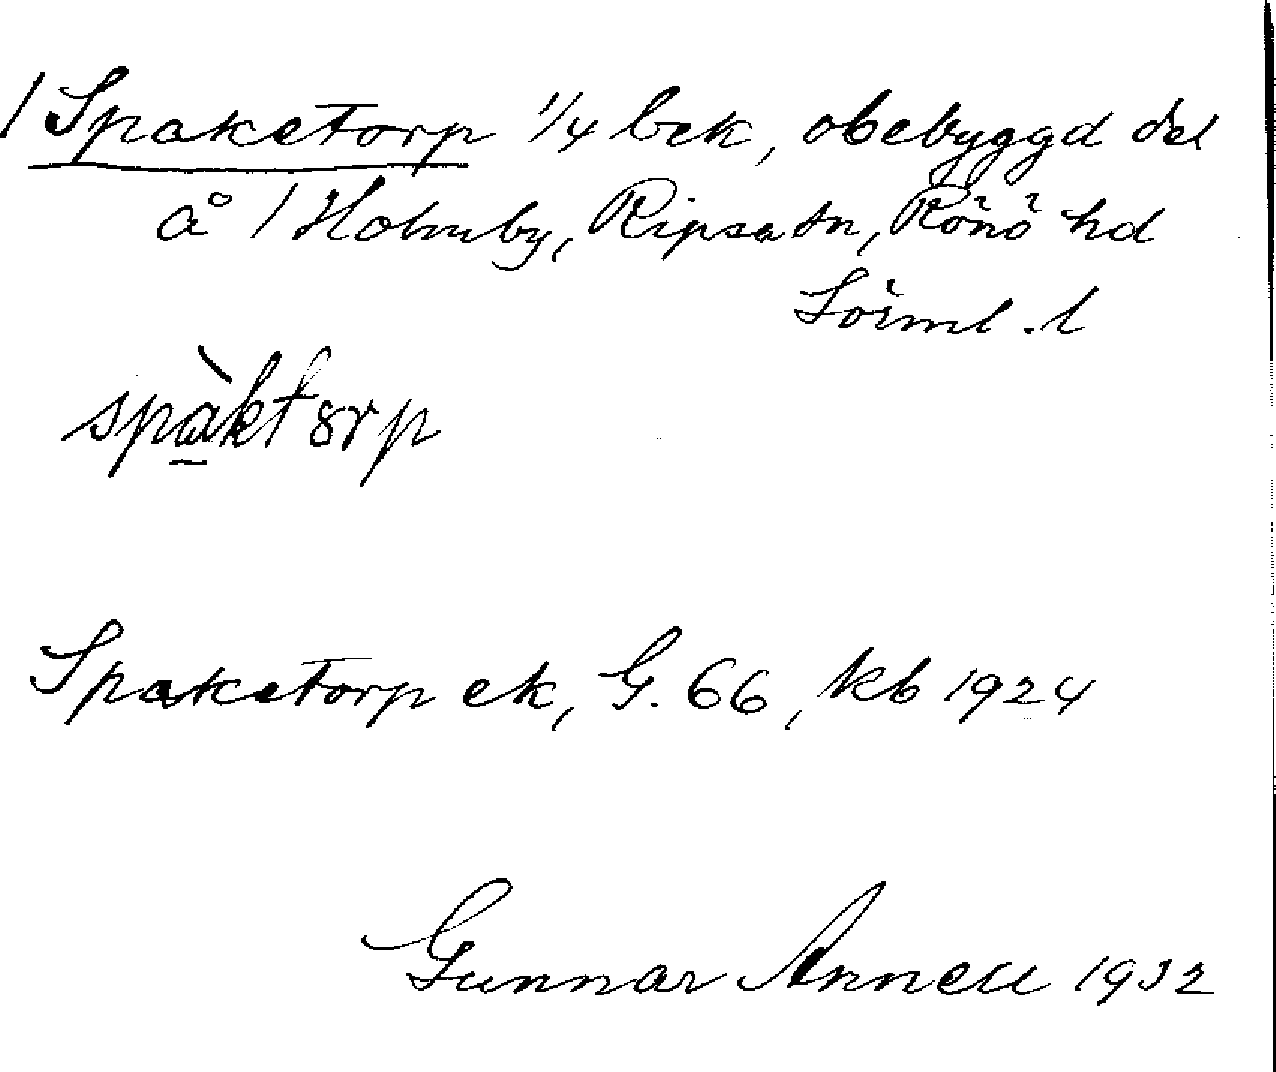 / Spaketorp 1/4 bek, obebyggd del
å / Holmby, Ripsa sn, Rönö hd
Sörml. l
spàktorp
Spaketorp ek, G. 66, kb 1924
Gunnar Annell 1932